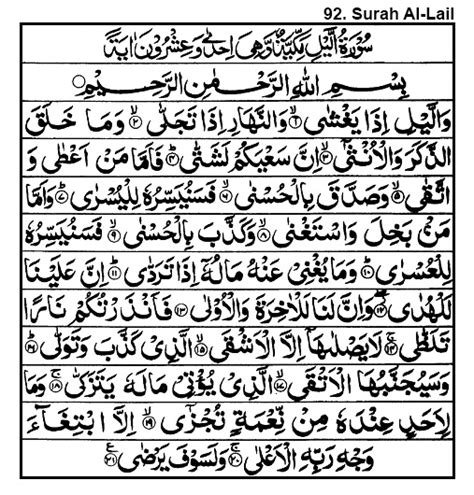 92. Surah Al-Lail
سُوْرَةُ الَّيْلِ مَكِّيَّةٌ وَّهِىَ اِحْدٰى وَعِشْرُوْنَ اٰيَةً
بِسْمِ اللّٰهِ الرَّحْمٰنِ الرَّحِيْمِ
وَالَّيْلِ اِذَا يَغْشٰى ۙ﴿۱﴾ وَالنَّهَارِ اِذَا تَجَلّٰى ۙ﴿۲﴾ وَمَا خَلَقَ
الذَّكَرَ وَالْاُنْثٰٓى ۙ﴿۳﴾ اِنَّ سَعْيَكُمْ لَشَتّٰى ؕ﴿۴﴾ فَاَمَّا مَنْ اَعْطٰى وَ
اتَّقٰى ۙ﴿۵﴾ وَصَدَّقَ بِالْحُسْنٰى ۙ﴿۶﴾ فَسَنُيَسِّرُهٗ لِلْيُسْرٰى ؕ﴿۷﴾ وَاَمَّا
مَنْۢ بَخِلَ وَاسْتَغْنٰى ۙ﴿۸﴾ وَكَذَّبَ بِالْحُسْنٰى ۙ﴿۹﴾ فَسَنُيَسِّرُهٗ
لِلْعُسْرٰى ؕ﴿۱۰﴾ وَمَا يُغْنِىْ عَنْهُ مَالُهٗۤ اِذَا تَرَدّٰى ؕ﴿۱۱﴾ اِنَّ عَلَيْنَا
لَلْهُدٰى ۖ﴿۱۲﴾ وَاِنَّ لَنَا لَلْاٰخِرَةَ وَالْاُوْلٰى ﴿۱۳﴾ فَاَنْذَرْتُكُمْ نَارًا
تَلَظّٰى ۚ﴿۱۴﴾ لَا يَصْلٰىهَاۤ اِلَّا الْاَشْقَى ۙ﴿۱۵﴾ الَّذِىْ كَذَّبَ وَتَوَلّٰى ؕ﴿۱۶﴾
وَسَيُجَنَّبُهَا الْاَتْقَى ۙ﴿۱۷﴾ الَّذِىْ يُؤْتِىْ مَالَهٗ يَتَزَكّٰى ۚ﴿۱۸﴾ وَمَا
لِاَحَدٍ عِنْدَهٗ مِنْ نِّعْمَةٍ تُجْزٰٓى ۙ﴿۱۹﴾ اِلَّا ابْتِغَآءَ
وَجْهِ رَبِّهِ الْاَعْلٰى ۚ﴿۲۰﴾ وَلَسَوْفَ يَرْضٰى ﴿۲۱﴾